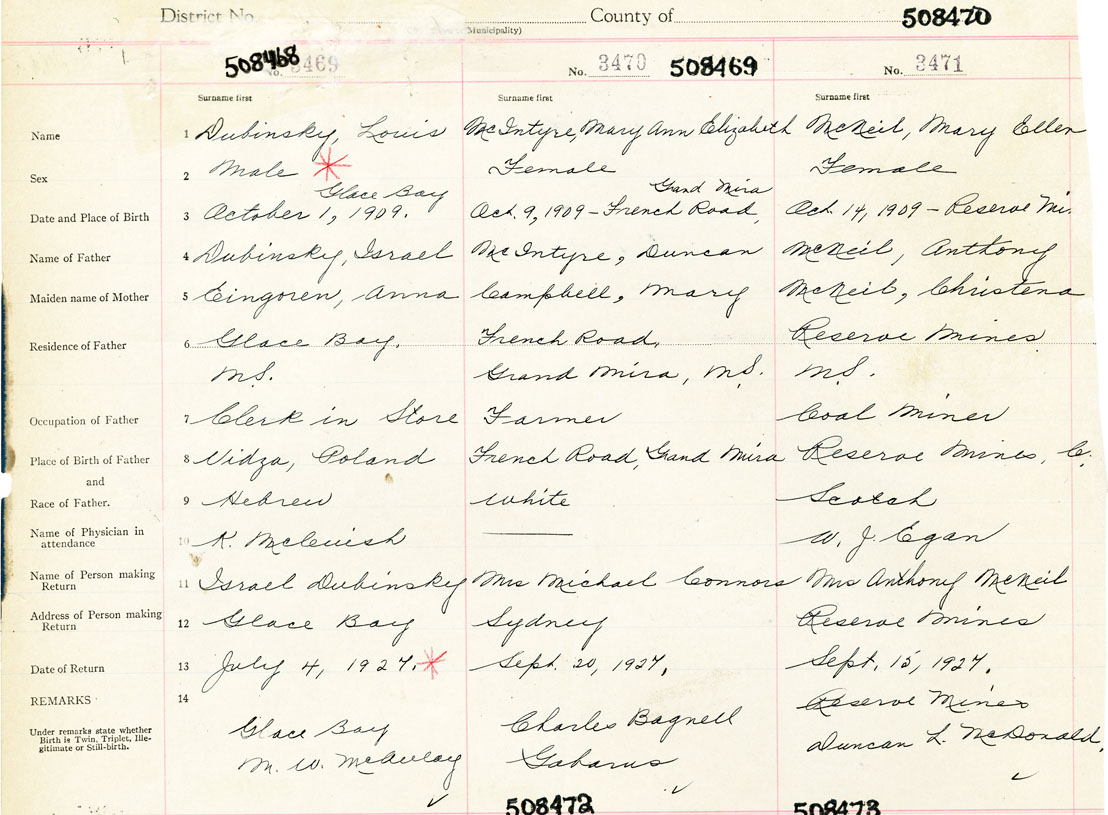 District No. County of 508470
Municipality)
508468 No. 3469 No. 3470 508469 No. 3471
Surname first Surname first Surname first
Name 1 Dubinsky, Louis McIntyre, Mary Ann Elizabeth McNeil, Mary Ellen
Sex 2 Male Female Female
Glace Bay Grand Mira
Date and Place of Birth 3 October 1, 1909. Oct. 9, 1909 - French Road, Oct. 14, 1909 - Reserve Mi.
Name of Father 4 Dubinsky, Israel McIntyre, Duncan McNeil, Anthony
Maiden name of Mother 5 Eingoren, Anna Campbell, Mary McNeil, Christena
Residence of Father 6 Glace Bay. French Road, Reserve Mines
N.S. Grand Mira, N.S. N.S.
Occupation of Father 7 Clerk in Store Farmer Coal Miner
Place of Birth of Father 8 Vidza, Poland French Road, Grand Mira Reserve Mines, C.
and
Race of Father. 9 Hebrew White Scotch
Name of Physician in
attendance 10 K. McCuish W. J. Egan
Name of Person making
Return 11 Israel Dubinsky Mrs Michael Connors Mrs Anthony McNeil
Address of Person making
Return 12 Glace Bay Sydney Reserve Mines
Date of Return 13 July 4, 1927. Sept. 20, 1927. Sept. 15, 1927.
REMARKS 14 Reserve Mines
Under remarks state whether
Birth is Twin, Triplet, Ille-
gitimate or Still-birth.
Glace Bay Charles Bagnell Duncan L. McDonald,
M. W. McAulay Gabarus
508472 508473